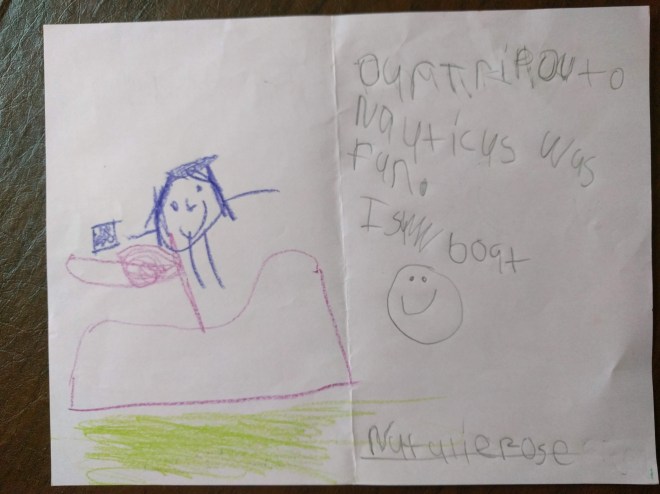 Our TriP Outo
Nauticus Was
Fun.
I saw boat
Natalierose